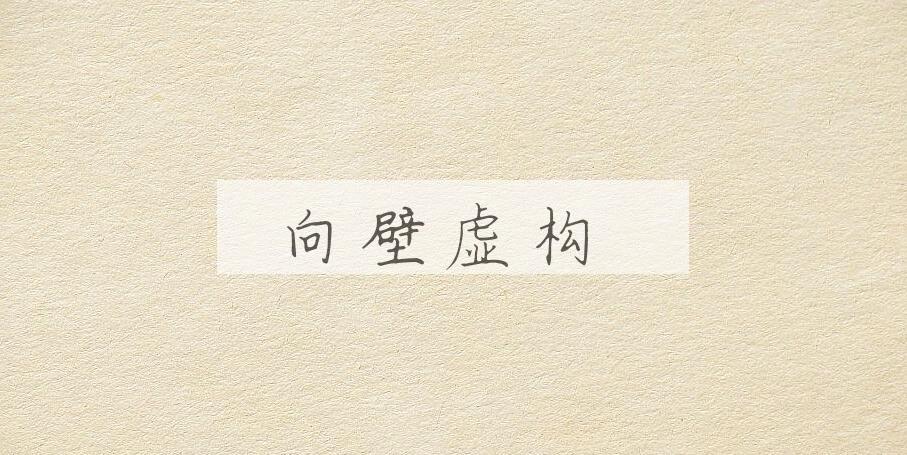 向壁虚构